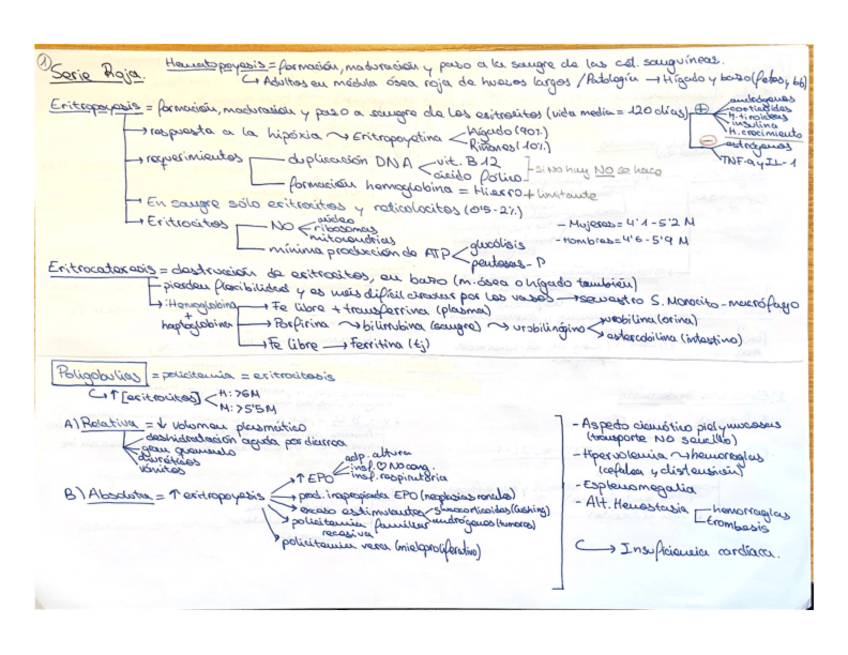 ① Serie Roja.
Hematopoyesis = formación, maduración y paso a la sangre de las cél. sanguíneas.
↳ Adultos en médula ósea roja de huesos largos / Patología → Hígado y bazo (fetos y bb)
Eritropoyesis = formación, maduración y paso a sangre de los eritrocitos (vida media = 120 días)
⊕ andrógenos
corticoides
H. tiroideas
insulina
H. crecimiento
⊖ estrógenos
TNF-α y IL-1
→ respuesta a la hipóxia ⤳ Eritropoyetina
Hígado (90%)
Riñones (10%)
→ requerimientos
duplicación DNA
vit. B12
ácido fólico
- si no hay NO se hace
formación hemoglobina = Hierro + limitante
→ En sangre sólo eritrocitos y reticulocitos (0'5-2%)
→ Eritrocitos
NO
núcleo
ribosomas
mitocondrias
mínima producción de ATP
glucólisis
pentosas-P
- Mujeres = 4'1-5'2 M
- Hombres = 4'6-5'9 M
Eritrocateresis = destrucción de eritrocitos, en bazo (m. ósea o hígado también)
pierden flexibilidad y es más difícil circular por los vasos → secuestro S. Monocito-macrófago
Hemoglobina + haptoglobina
→ Fe libre + transferrina (plasma)
→ Porfirina ⤳ bilirrubina (sangre) ⤳ urobilinógeno
urobilina (orina)
estercobilina (intestino)
→ Fe libre → Ferritina (tj)
Poliglobulias = policitemia = eritrocitosis
↳ ↑ [eritrocitos]
H: >6M
M: >5'5M
A) Relativa = ↓ volumen plasmático
deshidratación aguda por diarrea
gran quemado
diuréticos
vómitos
B) Absoluta = ↑ eritropoyesis
↑ EPO
adp. altura
insf. ♡ No cong.
insf. respiratoria
prod. inapropiada EPO (neoplasias renales)
exceso estimulantes
glucocorticoides (cushing)
andrógenos (tumores)
policitemia familiar recesiva
policitemia vera (mieloproliferativo)
- Aspecto cianótico piel y mucosas
(transporte NO sencillo)
- Hipervolemia ⤳ hemorragias
(cefalea y distensión)
- Esplenomegalia
- Alt. Hemostasia
hemorragias
trombosis
↳ Insuficiencia cardíaca.